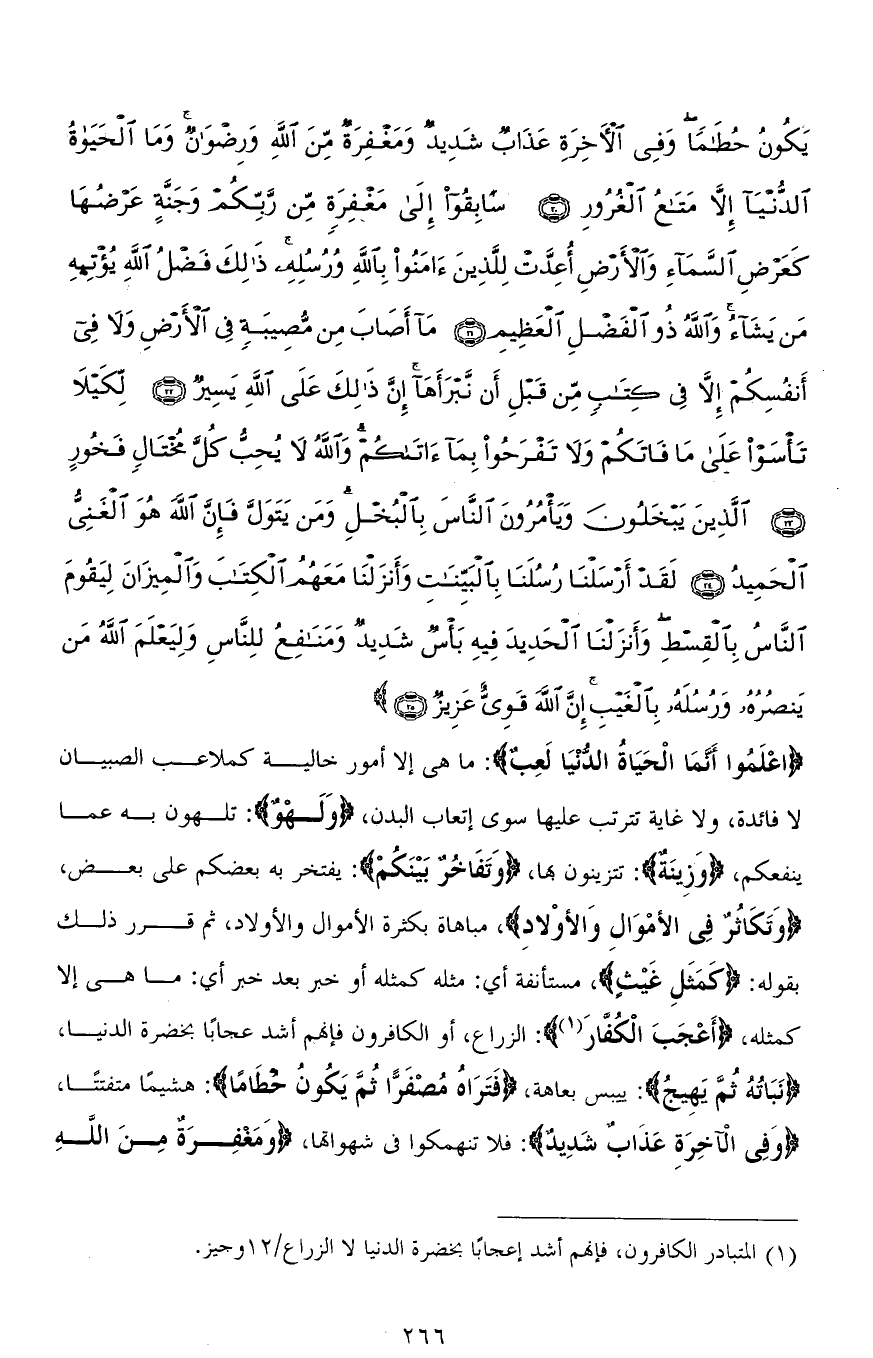 يَكُونُ حُطَٰمًا ۖ وَفِى ٱلْأَخِرَةِ عَذَابٌ شَدِيدٌ وَمَغْفِرَةٌ مِّنَ ٱللَّهِ وَرِضْوَٰنٌ ۚ وَمَا ٱلْحَيَوٰةُ
ٱلدُّنْيَآ إِلَّا مَتَٰعُ ٱلْغُرُورِ ﴿٢٠﴾ سَابِقُوٓا۟ إِلَىٰ مَغْفِرَةٍ مِّن رَّبِّكُمْ وَجَنَّةٍ عَرْضُهَا
كَعَرْضِ ٱلسَّمَآءِ وَٱلْأَرْضِ أُعِدَّتْ لِلَّذِينَ ءَامَنُوا۟ بِٱللَّهِ وَرُسُلِهِۦ ۚ ذَٰلِكَ فَضْلُ ٱللَّهِ يُؤْتِيهِ
مَن يَشَآءُ ۚ وَٱللَّهُ ذُو ٱلْفَضْلِ ٱلْعَظِيمِ ﴿٢١﴾ مَآ أَصَابَ مِن مُّصِيبَةٍ فِى ٱلْأَرْضِ وَلَا فِىٓ
أَنفُسِكُمْ إِلَّا فِى كِتَٰبٍ مِّن قَبْلِ أَن نَّبْرَأَهَآ ۚ إِنَّ ذَٰلِكَ عَلَى ٱللَّهِ يَسِيرٌ ﴿٢٢﴾ لِّكَيْلَا
تَأْسَوْا۟ عَلَىٰ مَا فَاتَكُمْ وَلَا تَفْرَحُوا۟ بِمَآ ءَاتَىٰكُمْ ۗ وَٱللَّهُ لَا يُحِبُّ كُلَّ مُخْتَالٍ فَخُورٍ
﴿٢٣﴾ ٱلَّذِينَ يَبْخَلُونَ وَيَأْمُرُونَ ٱلنَّاسَ بِٱلْبُخْلِ ۗ وَمَن يَتَوَلَّ فَإِنَّ ٱللَّهَ هُوَ ٱلْغَنِىُّ
ٱلْحَمِيدُ ﴿٢٤﴾ لَقَدْ أَرْسَلْنَا رُسُلَنَا بِٱلْبَيِّنَٰتِ وَأَنزَلْنَا مَعَهُمُ ٱلْكِتَٰبَ وَٱلْمِيزَانَ لِيَقُومَ
ٱلنَّاسُ بِٱلْقِسْطِ ۖ وَأَنزَلْنَا ٱلْحَدِيدَ فِيهِ بَأْسٌ شَدِيدٌ وَمَنَٰفِعُ لِلنَّاسِ وَلِيَعْلَمَ ٱللَّهُ مَن
يَنصُرُهُۥ وَرُسُلَهُۥ بِٱلْغَيْبِ ۚ إِنَّ ٱللَّهَ قَوِىٌّ عَزِيزٌ ﴿٢٥﴾ ﴾
﴿اعْلَمُوا أَنَّمَا الْحَيَاةُ الدُّنْيَا لَعِبٌ﴾: ما هى إلا أمور خالية كملاعب الصبيان
لا فائدة، ولا غاية تترتب عليها سوى إتعاب البدن، ﴿وَلَهْوٌ﴾: تلهون به عما
ينفعكم، ﴿وَزِينَةٌ﴾: تتزينون بها، ﴿وَتَفَاخُرٌ بَيْنَكُمْ﴾: يفتخر به بعضكم على بعض،
﴿وَتَكَاثُرٌ فِى الأَمْوَالِ وَالأَوْلادِ﴾، مباهاة بكثرة الأموال والأولاد، ثم قرر ذلك
بقوله: ﴿كَمَثَلِ غَيْثٍ﴾، مستأنفة أي: مثله كمثله أو خبر بعد خبر أي: ما هى إلا
كمثله، ﴿أَعْجَبَ الْكُفَّارَ(١)﴾: الزراع، أو الكافرون فإنهم أشد عجابًا بخضرة الدنيا،
﴿نَبَاتُهُ ثُمَّ يَهِيجُ﴾: ييبس بعاهة، ﴿فَتَرَاهُ مُصْفَرًّا ثُمَّ يَكُونُ حُطَامًا﴾: هشيمًا متفتتًا،
﴿وَفِى الْآخِرَةِ عَذَابٌ شَدِيدٌ﴾: فلا تنهمكوا فى شهواتها، ﴿وَمَغْفِرَةٌ مِنَ اللَّهِ
(١) المتبادر الكافرون، فإنهم أشد إعجابًا بخضرة الدنيا لا الزراع/١٢وجيز.
٢٦٦